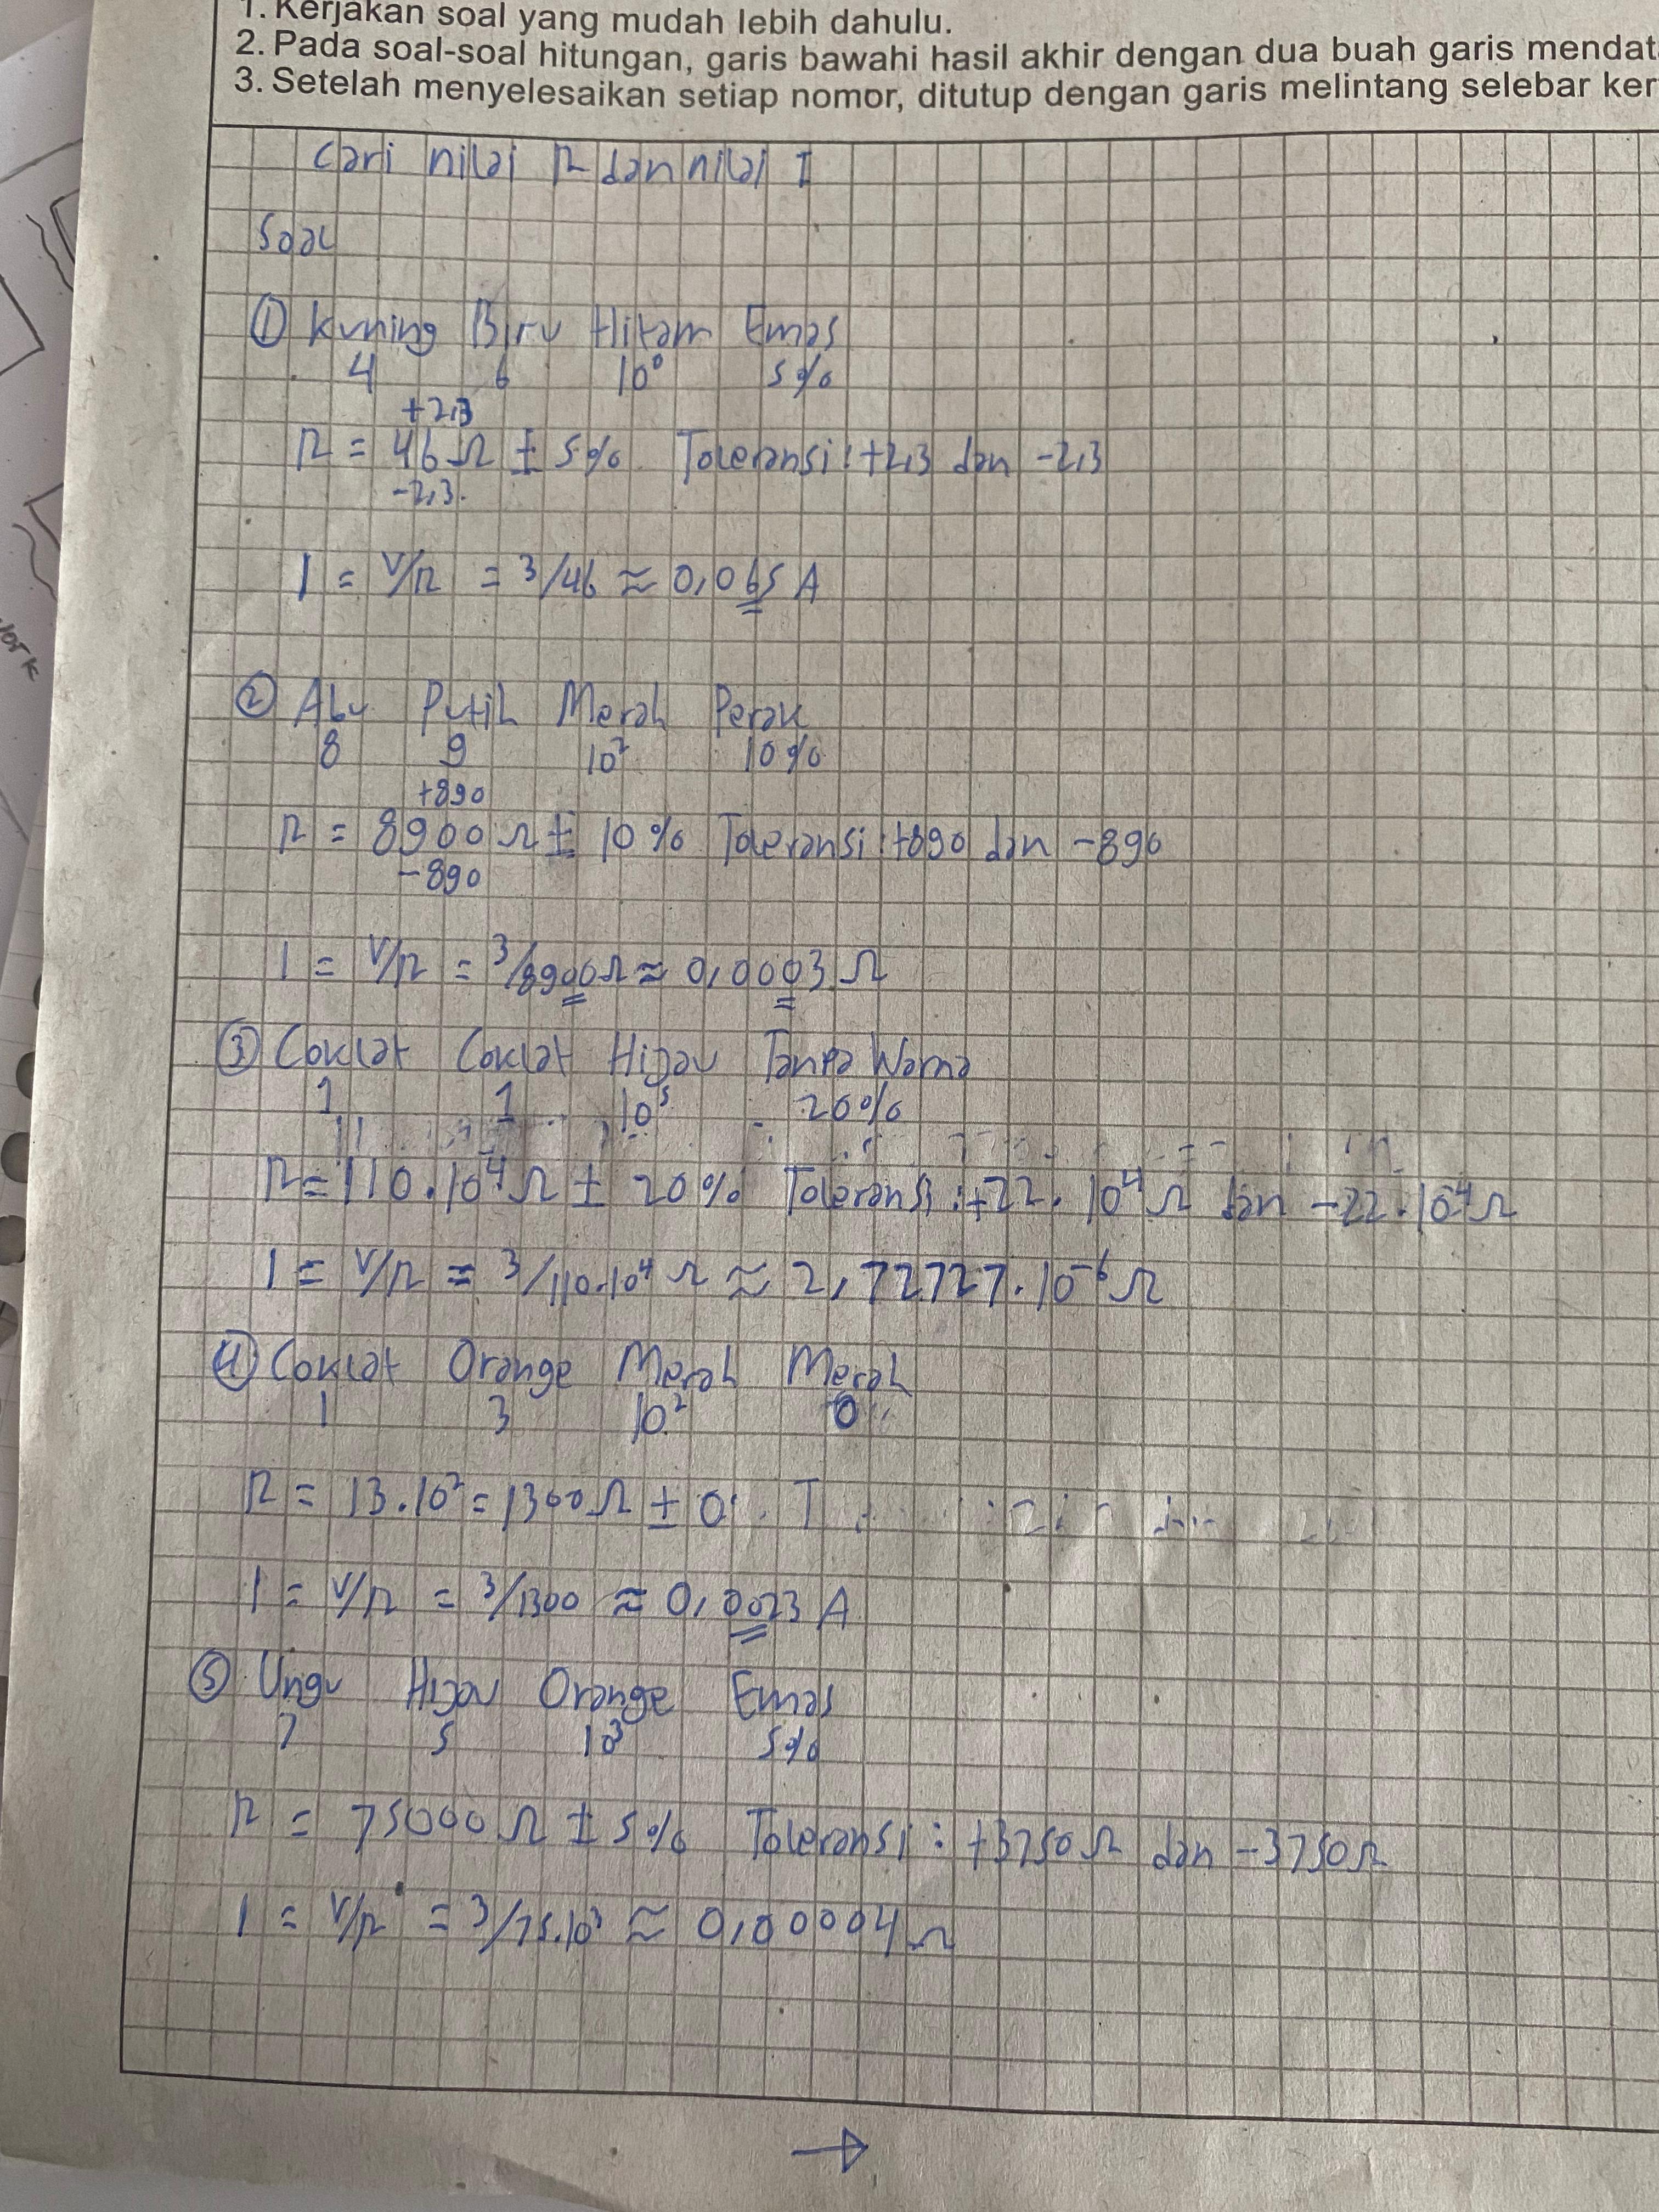 1. Kerjakan soal yang mudah lebih dahulu.
2. Pada soal-soal hitungan, garis bawahi hasil akhir dengan dua buah garis mendat
3. Setelah menyelesaikan setiap nomor, ditutup dengan garis melintang selebar ker
Cari nilai R dan nilai I
Soal
① Kuning Biru Hitam Emas
4 6 10⁰ 5%
+2,3
R = 46 Ω ± 5% Toleransi : +2,3 dan -2,3
-2,3
I = V/R = 3/46 ≈ 0,065 A
② Abu Putih Merah Perak
8 9 10² 10%
+890
R = 8900 Ω ± 10% Toleransi : +890 dan -890
-890
I = V/R = 3/8900 Ω ≈ 0,0003 Ω
③ Coklat Coklat Hijau Tanpa Warna
1 1 10⁵ 20%
R = 110.10⁴ Ω ± 20% Toleransi : +22.10⁴ Ω dan -22.10⁴ Ω
I = V/R = 3/110.10⁴ Ω ≈ 2,72727.10⁻⁶ Ω
④ Coklat Orange Merah Merah
1 3 10² 0
R = 13.10² = 1300 Ω ± 0
I = V/R = 3/1300 ≈ 0,0023 A
⑤ Ungu Hijau Orange Emas
7 5 10³ 5%
R = 75000 Ω ± 5% Toleransi : +3750 Ω dan -3750 Ω
I = V/R = 3/75.10³ ≈ 0,00004 Ω
→